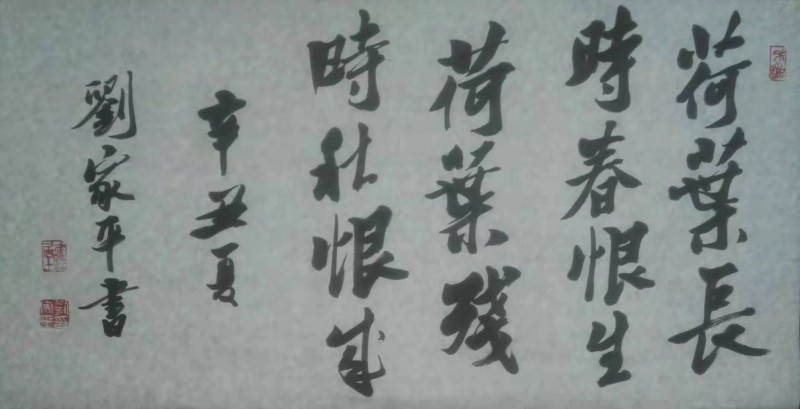 荷葉長
時春恨生
荷葉殘
時秋恨成
辛丑夏
劉家平書